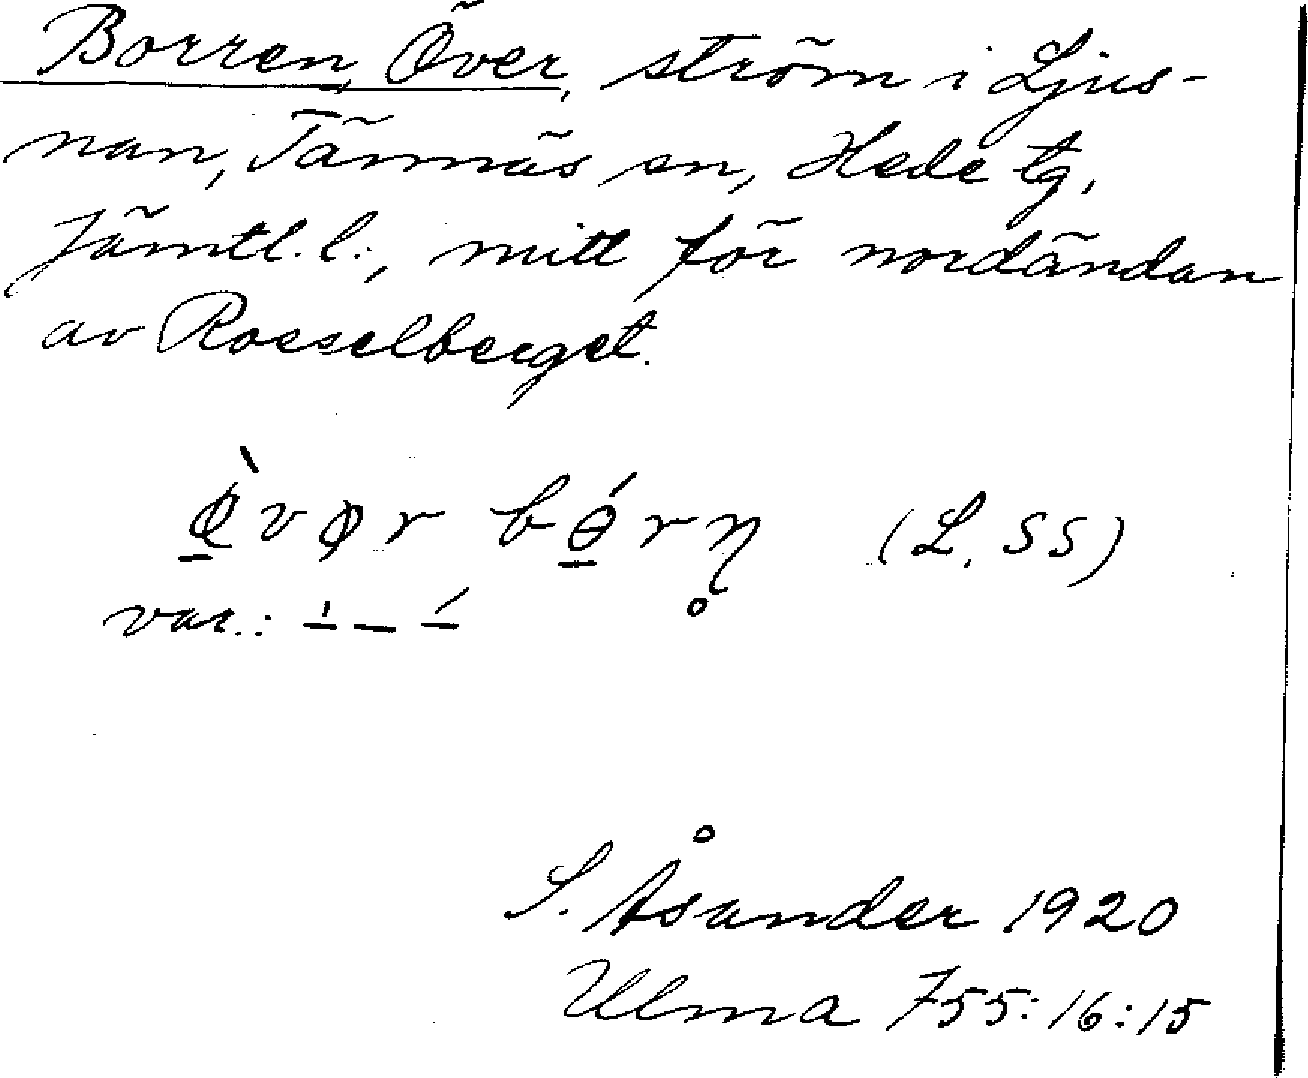 Borren, Över, ström i Ljus-
nan, Tännäs sn, Hede tg,
Jämtl. l., mitt för nordändan
av Rosselberget.
(L. SS)
var.:
S. Åsander 1920
Ulma 755:16:15